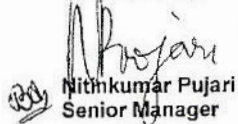 Nitinkumar Pujari
Senior Manager